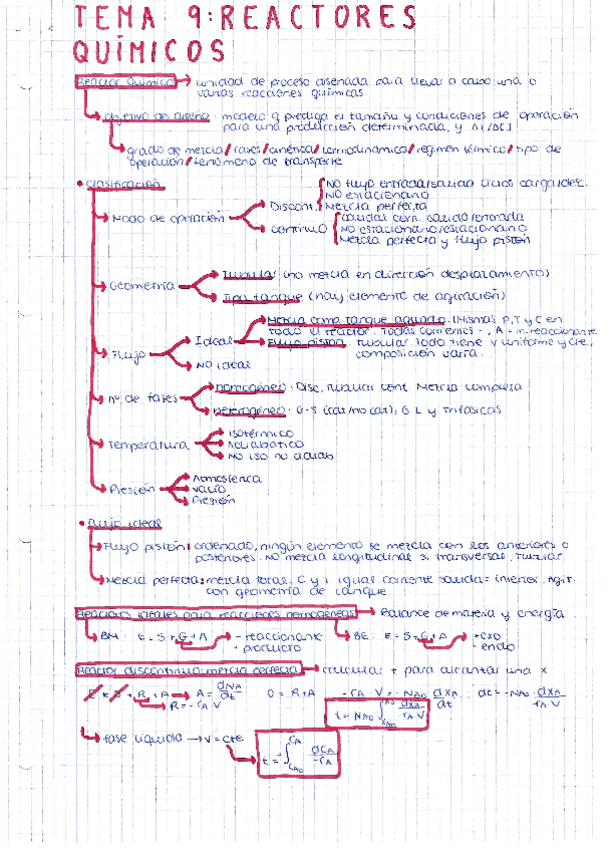 TEMA 9: REACTORES
QUÍMICOS
Reactor Químico → unidad de proceso diseñada para llevar a cabo una o
varias reacciones químicas
objetivo del diseño: modelo q prediga el tamaño y condiciones de operación
para una producción determinada, y
grado de mezcla / fases / cinética / termodinámica / régimen térmico / tipo de
operación / fenómeno de transporte
• Clasificación
Modo de operación
Discont. NO flujo entrada/salida ciclos carga/desc.
NO estacionario
Mezcla perfecta
continuo caudal salida/entrada
NO estacionario/estacionario
Mezcla perfecta y flujo pistón
Geometría
Tubular (no mezcla en dirección desplazamiento)
Tipo tanque (hay elemento de agitación)
Flujo
Ideal
Mezcla como tanque agitado. (Mismas P, T y C en
todo el reactor. Todas corrientes
Flujo pistón. Tubular. Todo tiene v uniforme y cte,
composición varía.
NO ideal
nº de fases
homogéneo: Disc, tubular cont. Mezcla completa
heterogéneo: G-S (cat/no cat), G L y Trifásicas
Temperatura
Isotérmico
Adiabático
NO iso no adiab
Presión
Atmosférica
Vacío
Presión
• Flujo ideal
Flujo pistón: ordenado, ningún elemento se mezcla con los anteriores o
posteriores. NO mezcla longitudinal sí transversal. Tubular
Mezcla perfecta: mezcla total, C y T igual corriente salida = interior. Agit.
con geometría de tanque
Reactores ideales para reacciones homogéneas → Balance de materia y energía
BM: E = S + G + A → - reaccionante
+ producto
BE: E = S + G + A → + exo
- endo
Reactor discontinuo mezcla perfecta → calcular t para alcanzar una x
E = S + R + A → A = dNA/dt 0 = R + A -rA · V = -NAo dXA/dt dt = -NAo · dXA/rA·V
R = -rA V
t = NAo ∫ dXA/rA V
fase líquida → V = cte
t = ∫ dCA/-rA